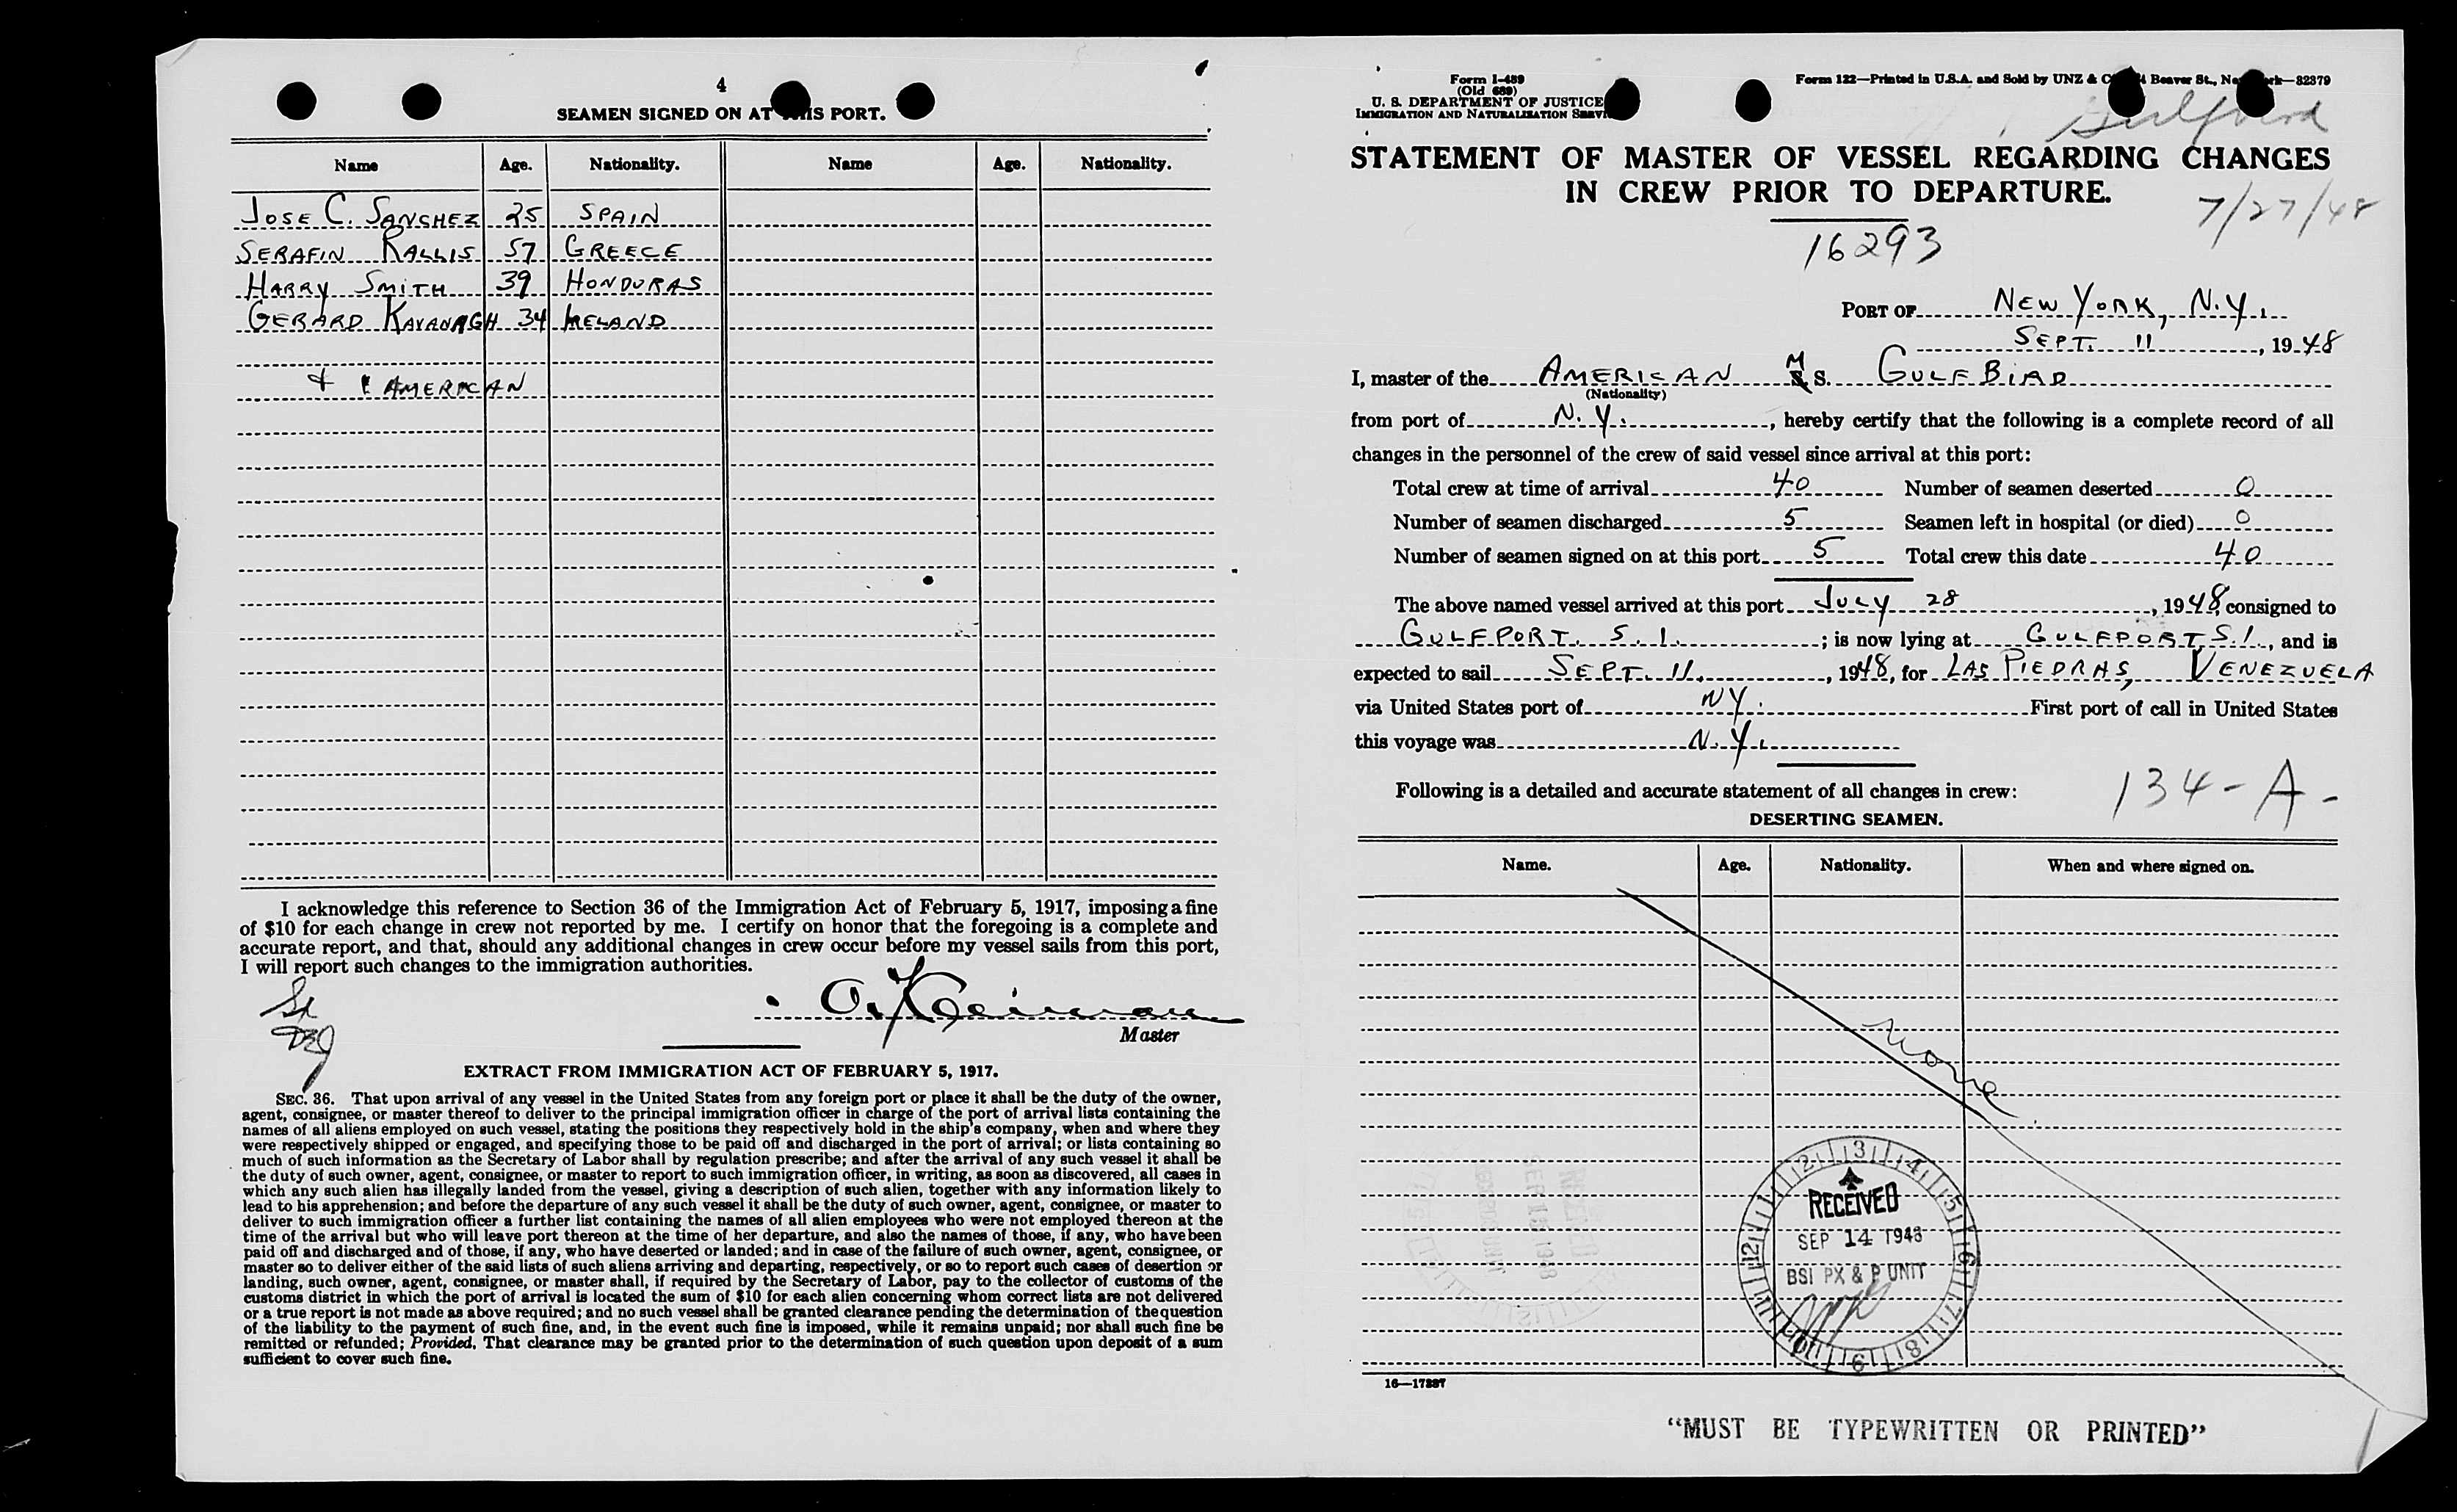 4
SEAMEN SIGNED ON AT THIS PORT.
Name Age. Nationality. Name Age. Nationality.
JOSE C. SANCHEZ 25 SPAIN
SERAFIN RALLIS 57 GREECE
HARRY SMITH 39 HONDURAS
GERARD KAVANAGH 34 IRELAND
+ 1 AMERICAN
I acknowledge this reference to Section 36 of the Immigration Act of February 5, 1917, imposing a fine
of $10 for each change in crew not reported by me. I certify on honor that the foregoing is a complete and
accurate report, and that, should any additional changes in crew occur before my vessel sails from this port,
I will report such changes to the immigration authorities.
Master
EXTRACT FROM IMMIGRATION ACT OF FEBRUARY 5, 1917.
SEC. 36. That upon arrival of any vessel in the United States from any foreign port or place it shall be the duty of the owner,
agent, consignee, or master thereof to deliver to the principal immigration officer in charge of the port of arrival lists containing the
names of all aliens employed on such vessel, stating the positions they respectively hold in the ship's company, when and where they
were respectively shipped or engaged, and specifying those to be paid off and discharged in the port of arrival; or lists containing so
much of such information as the Secretary of Labor shall by regulation prescribe; and after the arrival of any such vessel it shall be
the duty of such owner, agent, consignee, or master to report to such immigration officer, in writing, as soon as discovered, all cases in
which any such alien has illegally landed from the vessel, giving a description of such alien, together with any information likely to
lead to his apprehension; and before the departure of any such vessel it shall be the duty of such owner, agent, consignee, or master to
deliver to such immigration officer a further list containing the names of all alien employees who were not employed thereon at the
time of the arrival but who will leave port thereon at the time of her departure, and also the names of those, if any, who have been
paid off and discharged and of those, if any, who have deserted or landed; and in case of the failure of such owner, agent, consignee, or
master so to deliver either of the said lists of such aliens arriving and departing, respectively, or so to report such cases of desertion or
landing, such owner, agent, consignee, or master shall, if required by the Secretary of Labor, pay to the collector of customs of the
customs district in which the port of arrival is located the sum of $10 for each alien concerning whom correct lists are not delivered
or a true report is not made as above required; and no such vessel shall be granted clearance pending the determination of the question
of the liability to the payment of such fine, and, in the event such fine is imposed, while it remains unpaid; nor shall such fine be
remitted or refunded; Provided, That clearance may be granted prior to the determination of such question upon deposit of a sum
sufficient to cover such fine.
Form I-489
(Old 689)
U. S. DEPARTMENT OF JUSTICE
IMMIGRATION AND NATURALIZATION SERVICE
Form 122—Printed in U.S.A. and Sold by UNZ & Co., 24 Beaver St., New York—82379
STATEMENT OF MASTER OF VESSEL REGARDING CHANGES
IN CREW PRIOR TO DEPARTURE.
7/27/48
16293
PORT OF NEW YORK, N.Y.
SEPT. 11, 1948
I, master of the AMERICAN M S. GULFBIRD
(Nationality)
from port of N.Y., hereby certify that the following is a complete record of all
changes in the personnel of the crew of said vessel since arrival at this port:
Total crew at time of arrival 40 Number of seamen deserted 0
Number of seamen discharged 5 Seamen left in hospital (or died) 0
Number of seamen signed on at this port 5 Total crew this date 40
The above named vessel arrived at this port JULY 28, 1948, consigned to
GULFPORT. S. I.; is now lying at GULFPORT S.I., and is
expected to sail SEPT. 11., 1948, for LAS PIEDRAS, VENEZUELA
via United States port of NY. First port of call in United States
this voyage was N.Y.
Following is a detailed and accurate statement of all changes in crew:
134-A-
DESERTING SEAMEN.
Name. Age. Nationality. When and where signed on.
none
RECEIVED
SEP 14 1948
BSI PX & P UNIT
1 2 3 4 5 6 7 8 9 10 11 12
16—17287
"MUST BE TYPEWRITTEN OR PRINTED"